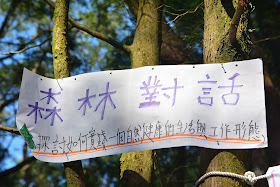 森林對話
探討如何實踐一個自然健康的生活與工作形態